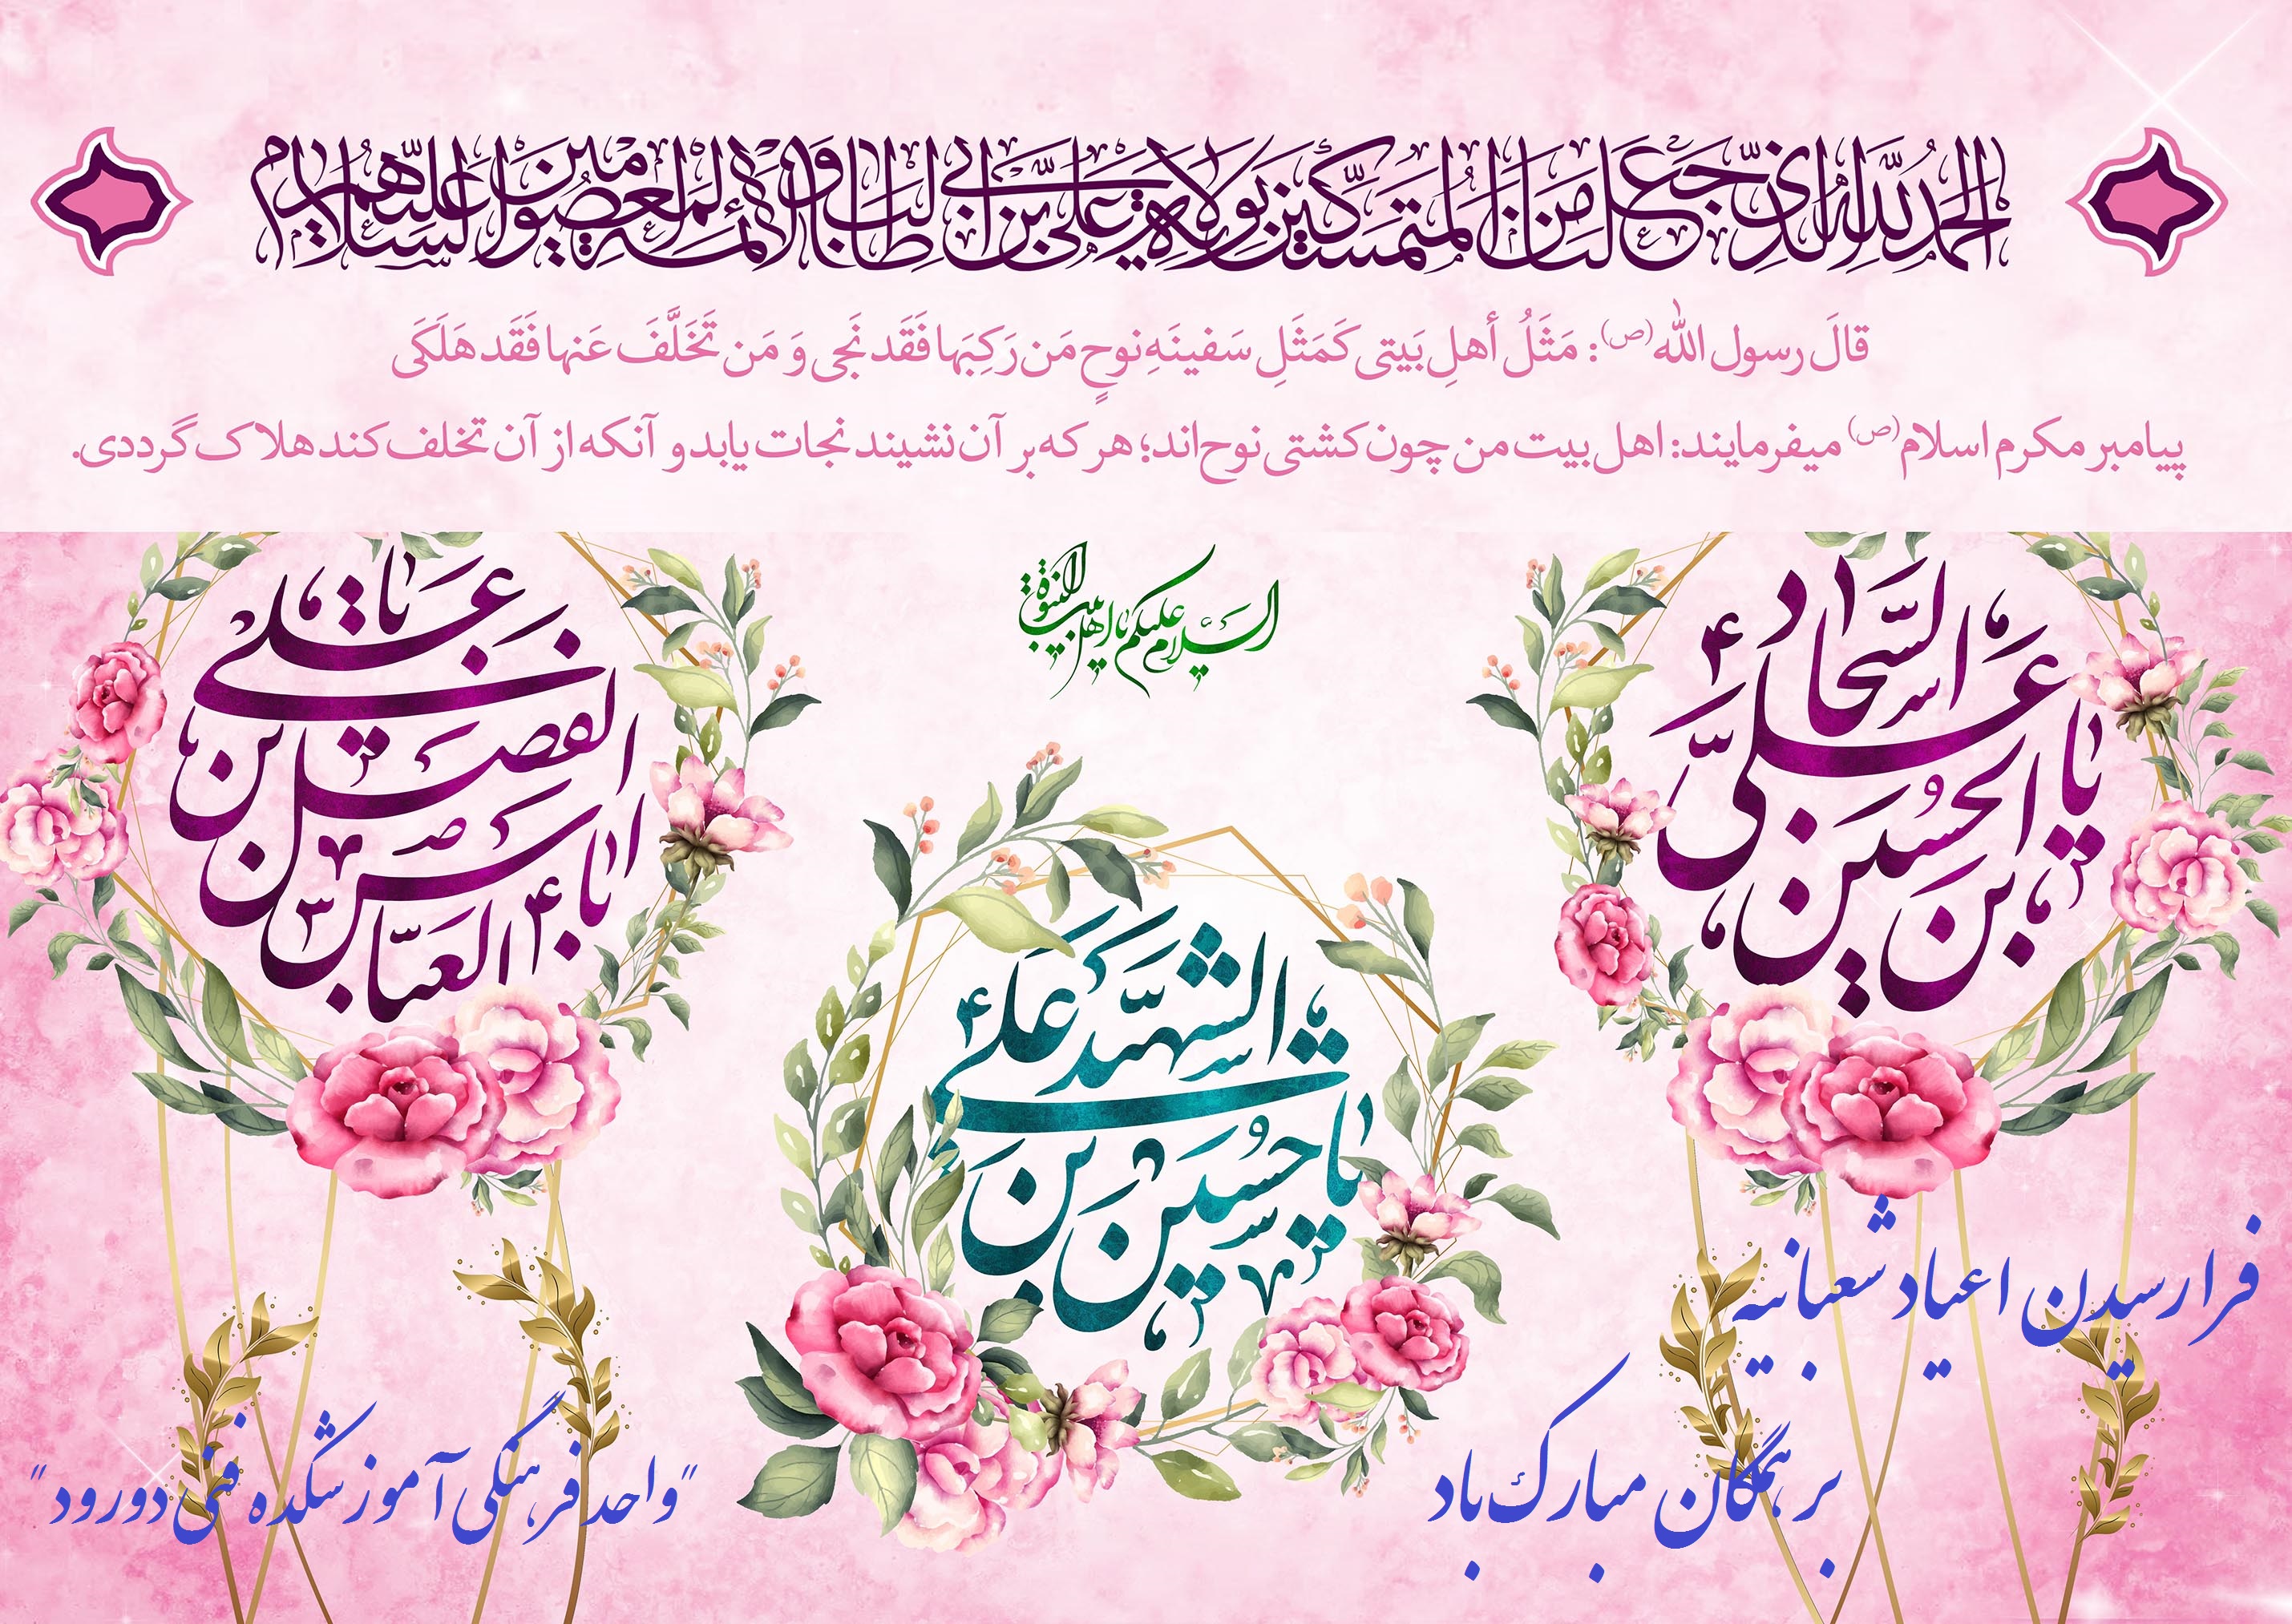 الحمد لله الذی جعلنا من المتمسکین بولایة علی بن ابی طالب و الائمة المعصومین علیهم السلام
قالَ رسول الله (ص): مَثَلُ أهلِ بَیتی کَمَثَلِ سَفینَهِ نوحٍ مَن رَکِبَها فَقَد نَجی وَ مَن تَخَلَّفَ عَنها فَقَد هَلَکَی
پیامبر مکرم اسلام (ص) میفرمایند: اهل بیت من چون کشتی نوح‌اند؛ هر که بر آن نشیند نجات یابد و آنکه از آن تخلف کند هلاک گرددی.
السلام علیکم یا اهل بیت النبوة
یا علی بن الحسین السجاد
یا اباالفضل العباس بن علی
یا حسین بن علی الشهید
فرارسیدن اعیاد شعبانیه
بر همگان مبارک باد
"واحد فرهنگی آموزشکده فنی دورود"